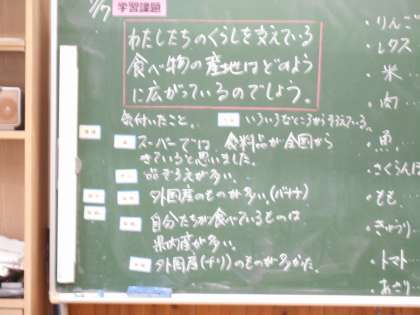 学習課題
わたしたちのくらしを支えている
食べ物の産地はどのよう
に広がっているのでしょう。
気付いたこと。
いろいろなところからそろえている。
スーパーでは 食料品が全国から
きていると思いました。
品ぞろえが多い。
外国産のものが多い。(バナナ)
自分たちが食べているものは
県内産が多い。
外国産(チリ)のものが多かった。
・りんご
・レタス
・米
・肉
・魚
・さくらんぼ
・もも
・きゅうり
・トマト
・あさり